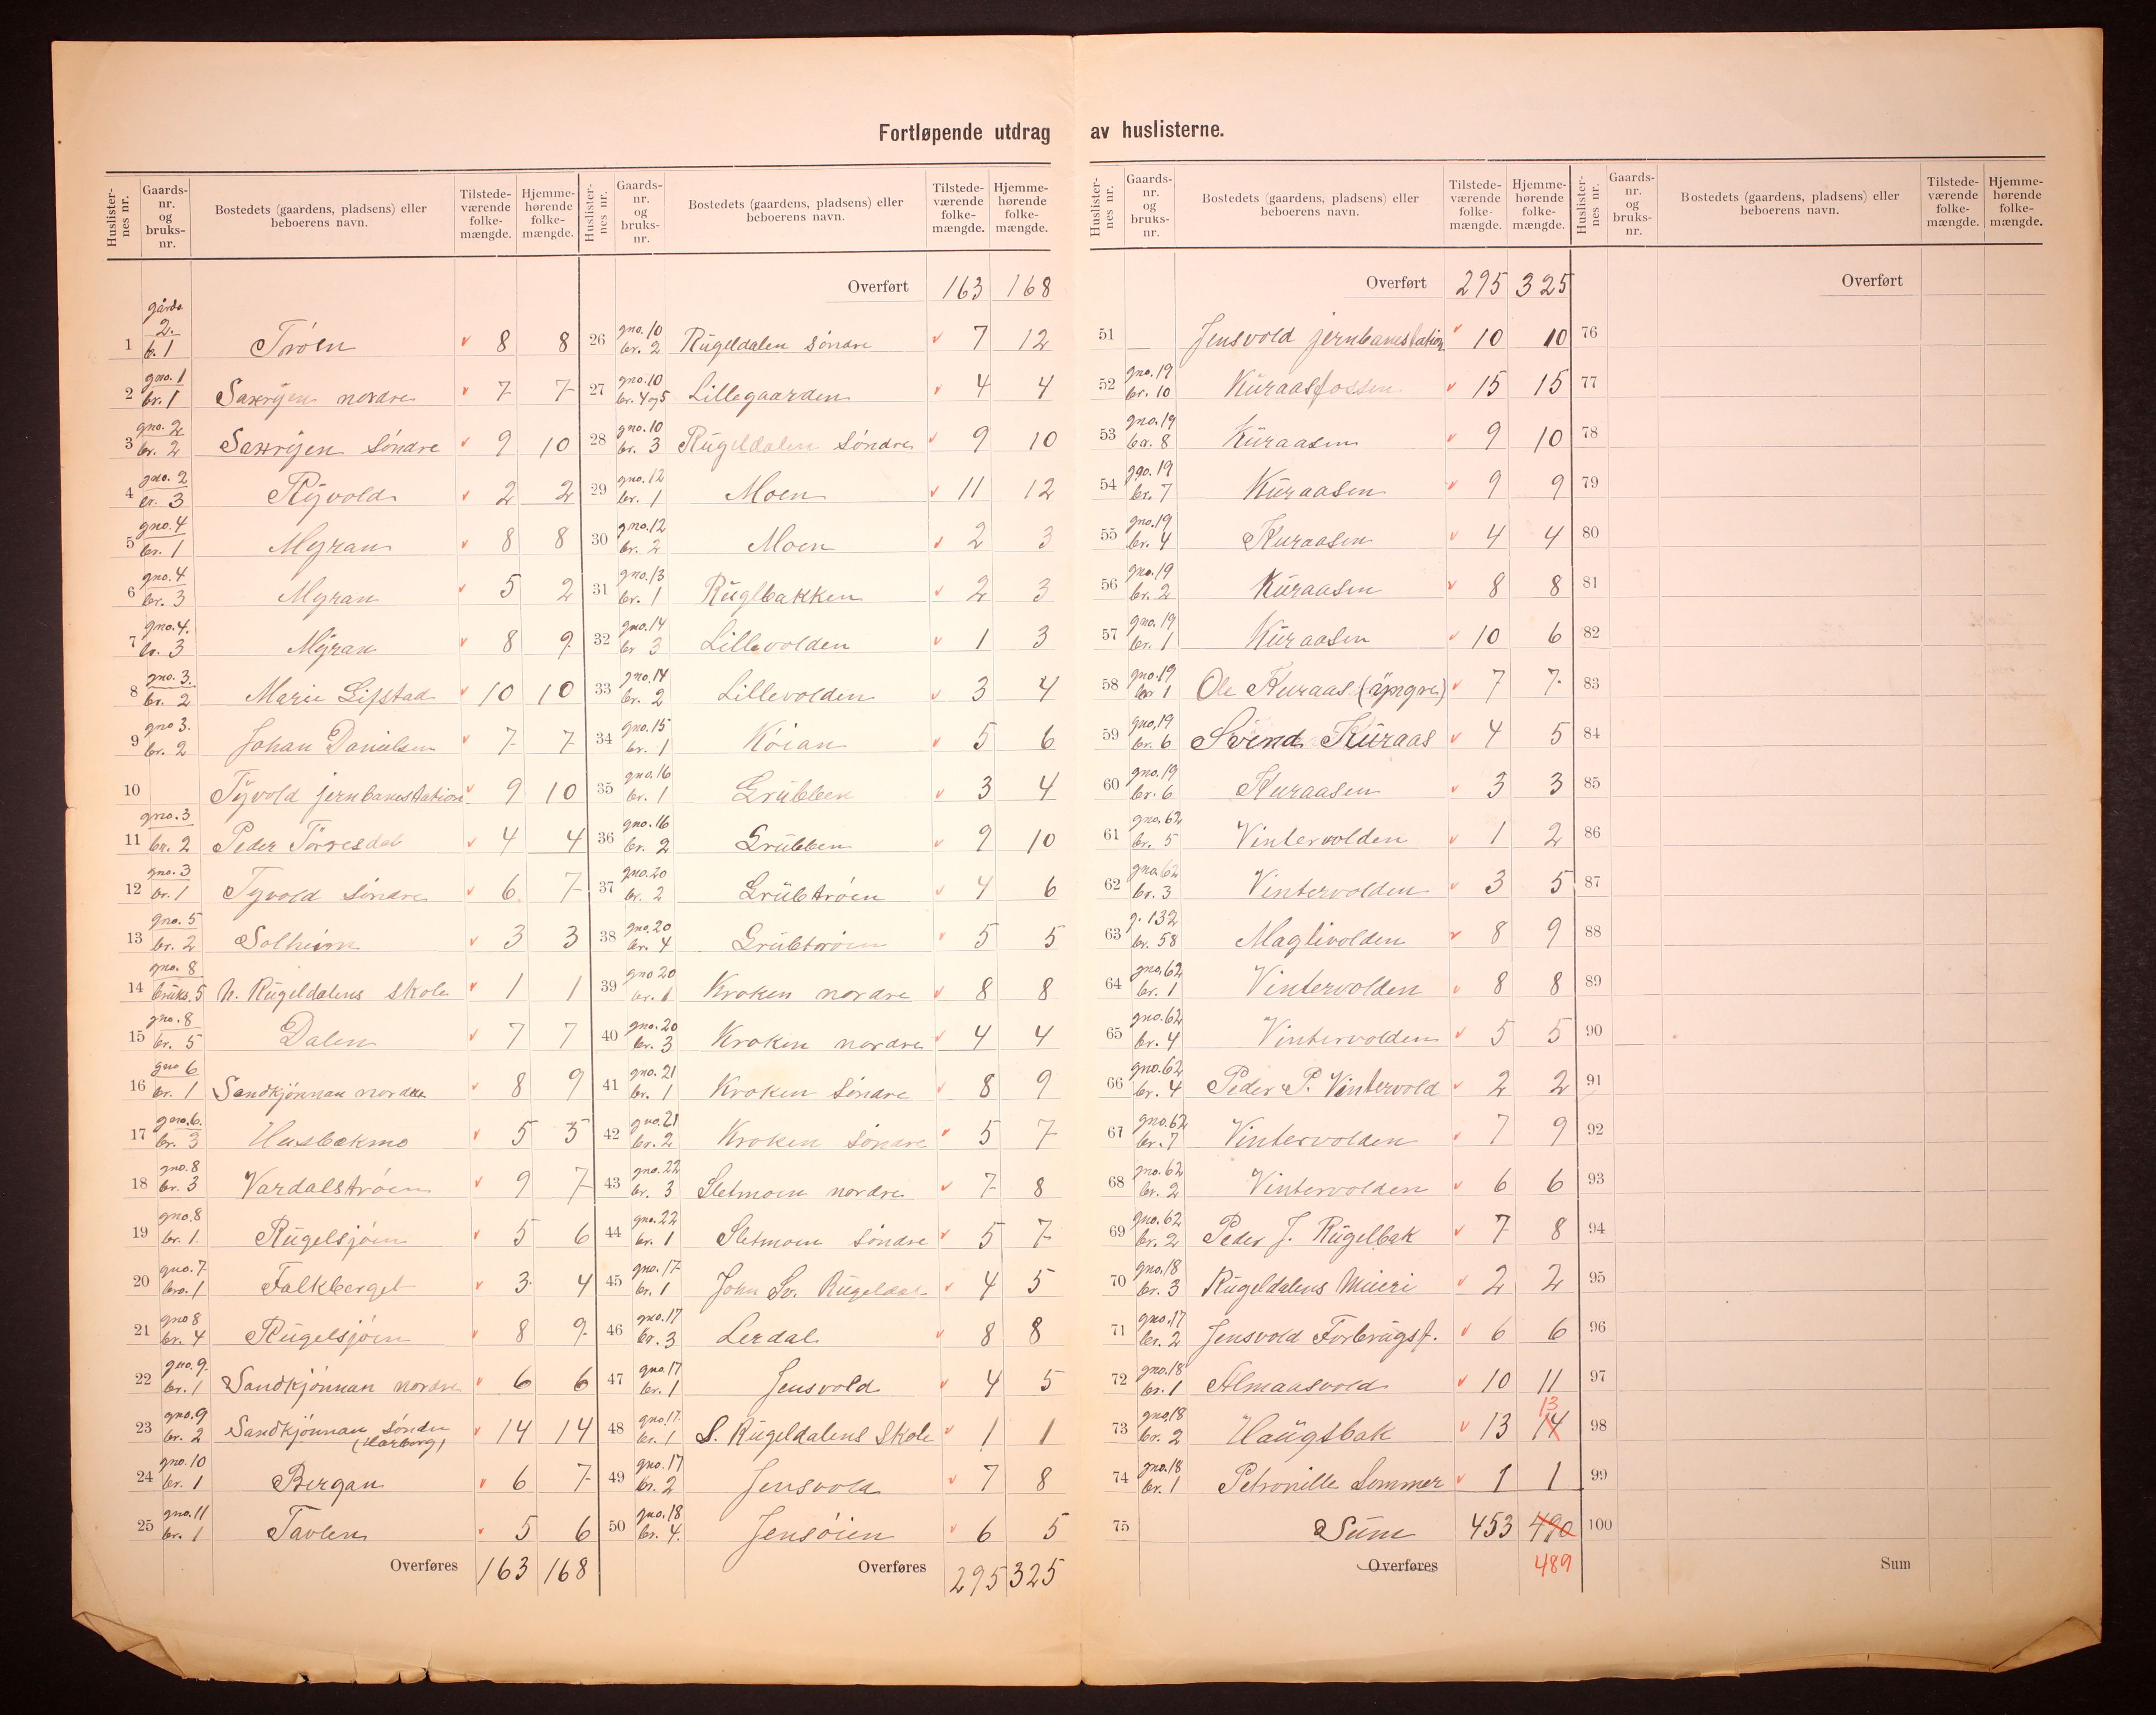 Fortløpende utdrag av huslisterne.
Huslister-nes nr. Gaards-nr. og bruks-nr. Bostedets (gaardens, pladsens) eller beboerens navn. Tilstede-værende folke-mængde. Hjemme-hørende folke-mængde.
gårds
2.
1 b. 1 Tøröen v 8 8
gno. 1
2 br. 1 nordre v 7 7
gno. 2
3 br. 2 Søndre v 9 10
gno. 2
4 br. 3 Ryvold v 2 2
gno. 4
5 br. 1 Myran v 8 8
gno. 4
6 br. 3 Myran v 5 2
gno. 4.
7 br. 3 Myran v 8 9
gno. 3.
8 br. 2 Marie Gifstad v 10 10
gno 3.
9 br. 2 Johan Danielsen v 7 7
10 Tyvold jernbanestation v 9 10
gno. 3
11 br. 2 Peder Torresdal v 4 4
gno. 3
12 br. 1 Tyvold Søndre v 6 7
gno. 5
13 br. 2 Solheim v 3 3
gno. 8
14 bruks. 5 N. Rugeldalens skole v 1 1
gno. 8
15 br. 5 Dalen v 7 7
gno 6
16 br. 1 Sandkjønnan nordre v 8 9
gno. 6.
17 br. 3 Husbækmo v 5 5
gno. 8
18 br. 3 Vardalstrøen v 9 7
gno. 8
19 br. 1. Rugelsjøen v 5 6
gno. 7
20 bro. 1 Falkberget v 3 4
gno 8
21 br. 4 Rugelsjøen v 8 9
gno. 9.
22 br. 1 Sandkjønnan nordre v 6 6
gno. 9
23 br. 2 Sandkjønnan Søndre v 14 14
(Harborg)
gno. 10
24 br. 1 Bergan v 6 7
gno. 11
25 br. 1 Tavlen v 5 6
Overføres 163 168
Huslister-nes nr. Gaards-nr. og bruks-nr. Bostedets (gaardens, pladsens) eller beboerens navn. Tilstede-værende folke-mængde. Hjemme-hørende folke-mængde.
Overført 163 168
gno. 10
26 br. 2 Rugeldalen søndre v 7 12
gno. 10
27 br. 4 og 5 Lillegaarden v 4 4
gno. 10
28 br. 3 Rugeldalen Søndre v 9 10
gno. 12
29 br. 1 Moen v 11 12
gno. 12
30 br. 2 Moen v 2 3
gno. 13
31 br. 1 Ruglbakken v 2 3
gno. 14
32 br 3 Lillevolden v 1 3
gno. 14
33 br. 2 Lillevolden v 3 4
gno. 15
34 br. 1 Køian v 5 6
gno. 16
35 br. 1 Grubben v 3 4
gno. 16
36 br. 2 Grubben v 9 10
gno. 20
37 br. 2 Grubtrøen v 4 6
gno. 20
38 br. 4 Grubtrøen v 5 5
gno 20
39 br. 1 Kroken nordre v 8 8
gno. 20
40 br. 3 Kroken nordre v 4 4
gno. 21
41 br. 1 Kroken Søndre v 8 9
gno. 21
42 br. 2 Kroken Søndre v 5 7
gno. 22
43 br. 3 Sletmoen nordre v 7 8
gno. 22
44 br. 1 Sletmoen Søndre v 5 7
gno. 17
45 br. 1 John Sv. Rugeldal v 4 5
gno. 17
46 br. 3 Lerdal v 8 8
gno. 17
47 br. 1 Jensvold v 4 5
gno. 17.
48 br. 1 S. Rugeldalens Skole v 1 1
gno. 17
49 br. 2 Jensvold v 7 8
gno. 18
50 br. 4. Jensøien v 6 5
Overføres 295 325
Huslister-nes nr. Gaards-nr. og bruks-nr. Bostedets (gaardens, pladsens) eller beboerens navn. Tilstede-værende folke-mængde. Hjemme-hørende folke-mængde.
Overført 295 325
51 Jensvold jernbanestation v 10 10
gno. 19
52 br. 10 Kuraasfossen v 15 15
gno. 19
53 br. 8 Kuraasen v 9 10
gno. 19
54 br. 7 Kuraasen v 9 9
gno. 19
55 br. 4 Kuraasen v 4 4
gno. 19
56 br. 2 Kuraasen v 8 8
gno. 19
57 br. 1 Kuraasen v 10 6
gno. 19
58 br 1 Ole Kuraas (yngre) v 7 7
gno. 19
59 br. 6 Svend Kuraas v 4 5
gno. 19
60 br. 6 Kuraasen v 3 3
gno. 62
61 br. 5 Vintervolden v 1 2
gno. 62
62 br. 3 Vintervolden v 3 5
g. 132
63 br. 58 Maglivolden v 8 9
gno. 62
64 br. 1 Vintervolden v 8 8
gno. 62
65 br. 4 Vintervolden v 5 5
gno. 62
66 br. 4 Peder P. Vintervold v 2 2
gno. 62
67 br. 7 Vintervolden v 7 9
gno. 62
68 br. 2 Vintervolden v 6 6
gno. 62
69 br. 2 Peder J. Rugelbak v 7 8
gno. 18
70 br. 3 Rugeldalens Mieri v 2 2
gno. 17
71 br. 2 Jensvold Forbrugsf. v 6 6
gno. 18
72 br. 1 Almaasvold v 10 11
gno. 18 13
73 br. 2 Haugsbak v 13 14
gno. 18
74 br. 1 Petronille Sommer v 1 1
75 Sum 453 490
Overføres 489
Huslister-nes nr. Gaards-nr. og bruks-nr. Bostedets (gaardens, pladsens) eller beboerens navn. Tilstede-værende folke-mængde. Hjemme-hørende folke-mængde.
Overført
76
77
78
79
80
81
82
83
84
85
86
87
88
89
90
91
92
93
94
95
96
97
98
99
100
Sum